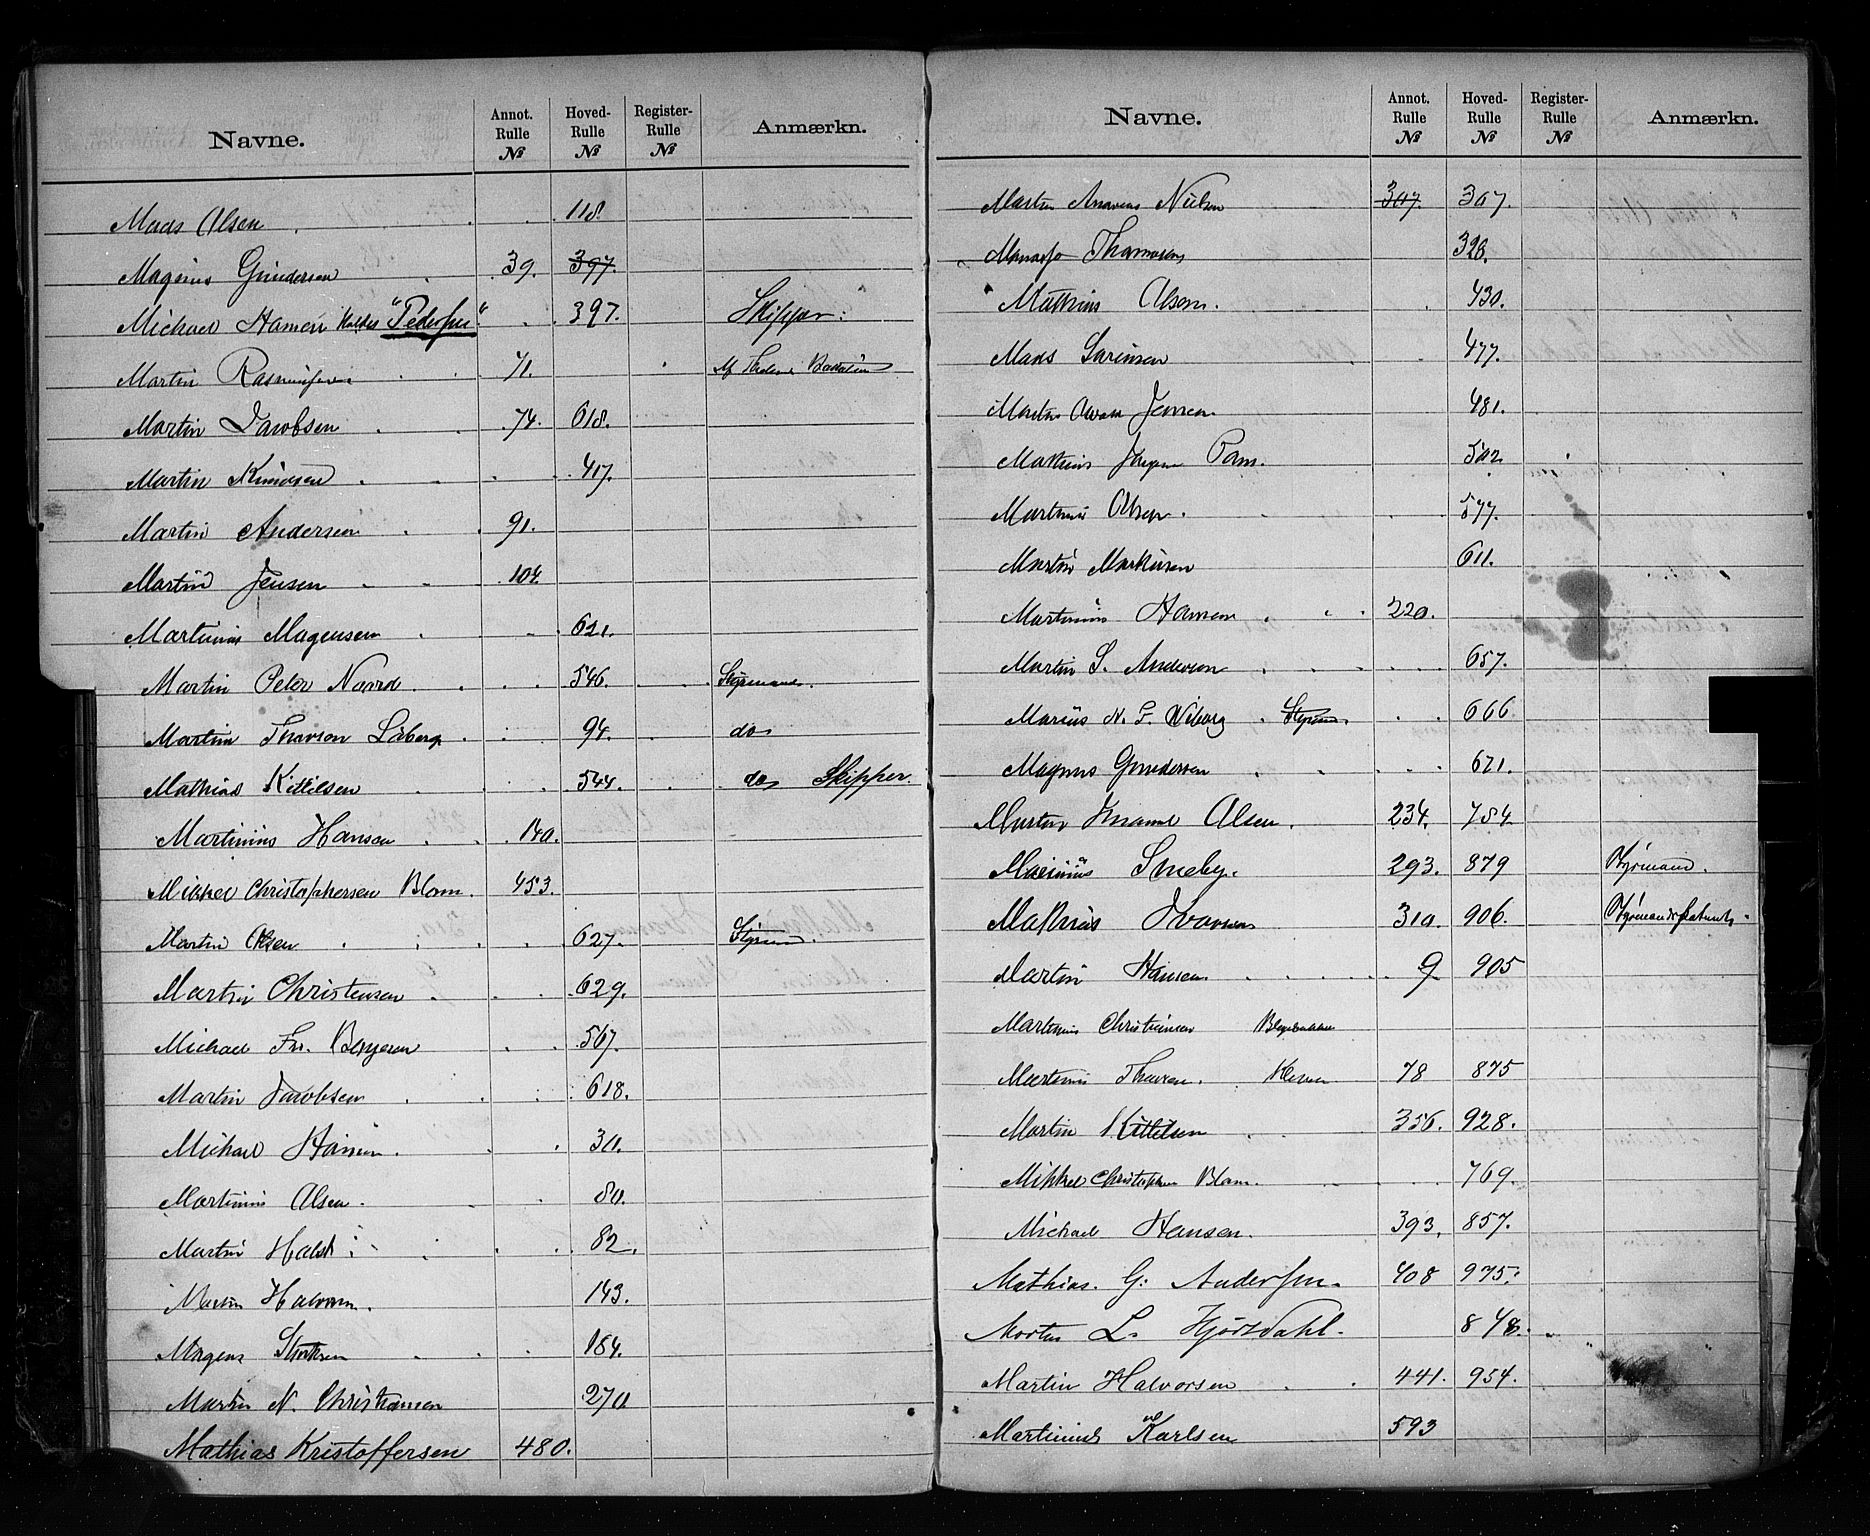 Navne. Annot. Rulle № Hoved-Rulle № Register-Rulle № Anmærkn.
Mads Olsen 118
Magnus Gundersen 39. 397.
Michael Hansen kaldes "Pedersen". 397. Skipper.
Martin Rasmussen 71.
Martin Jacobsen 74. 618.
Martin Knudsen 417.
Martin Andersen 91.
Martin Jensen 104
Martinius Magensen 621.
Martin Peter Narrd 546. Styrmand.
Martin Thorsen Låberg 94. do
Mathias Kittilsen 544. do Skipper.
Martinius Hansen 140.
Mikkel Christophersen Blom. 453.
Martin Olsen 627. Styrmd.
Martin Christensen 629.
Michael Fr. Bergersen 567.
Martin Jacobsen 618.
Michael Hansen. 30.
Martinius Olsen. 80.
Martin Halst 82.
Martin Halvorsen. 143.
Mogens 184.
Martin N. Christiansen 270
Mathias Kristoffersen 480.
Navne. Annot. Rulle № Hoved-Rulle № Register-Rulle № Anmærkn.
Martin Nielsen 307. 307.
Thomassen 328.
Mathias Olsen. 430.
Mads Sørensen 477.
Martin Jensen 481.
Mathias Jørgen 502
Martinus Olsen. 577.
Martin Markusen 611.
Martinius Hansen 220.
Martin S. Andersen 657.
Marius N. F. Wiborg Styrmd. 666
Magnus Gundersen 671.
Morten Olsen. 234. 784
Marinius Smeby. 293. 879 Styrmand.
Mathias 310. 906.
Martin Hansen 9 905
Martinius Christiansen
Martinus Thorsen. 78 875
Martin Kittilsen 356. 928.
Mikkel Christophersen Blom. 769.
Michael Hansen. 393. 857.
Mathias. G. Andersen. 408 975.
L. Hjørsdahl. 848.
Martin Halvorsen 441. 954.
Martinius Karlsen 593